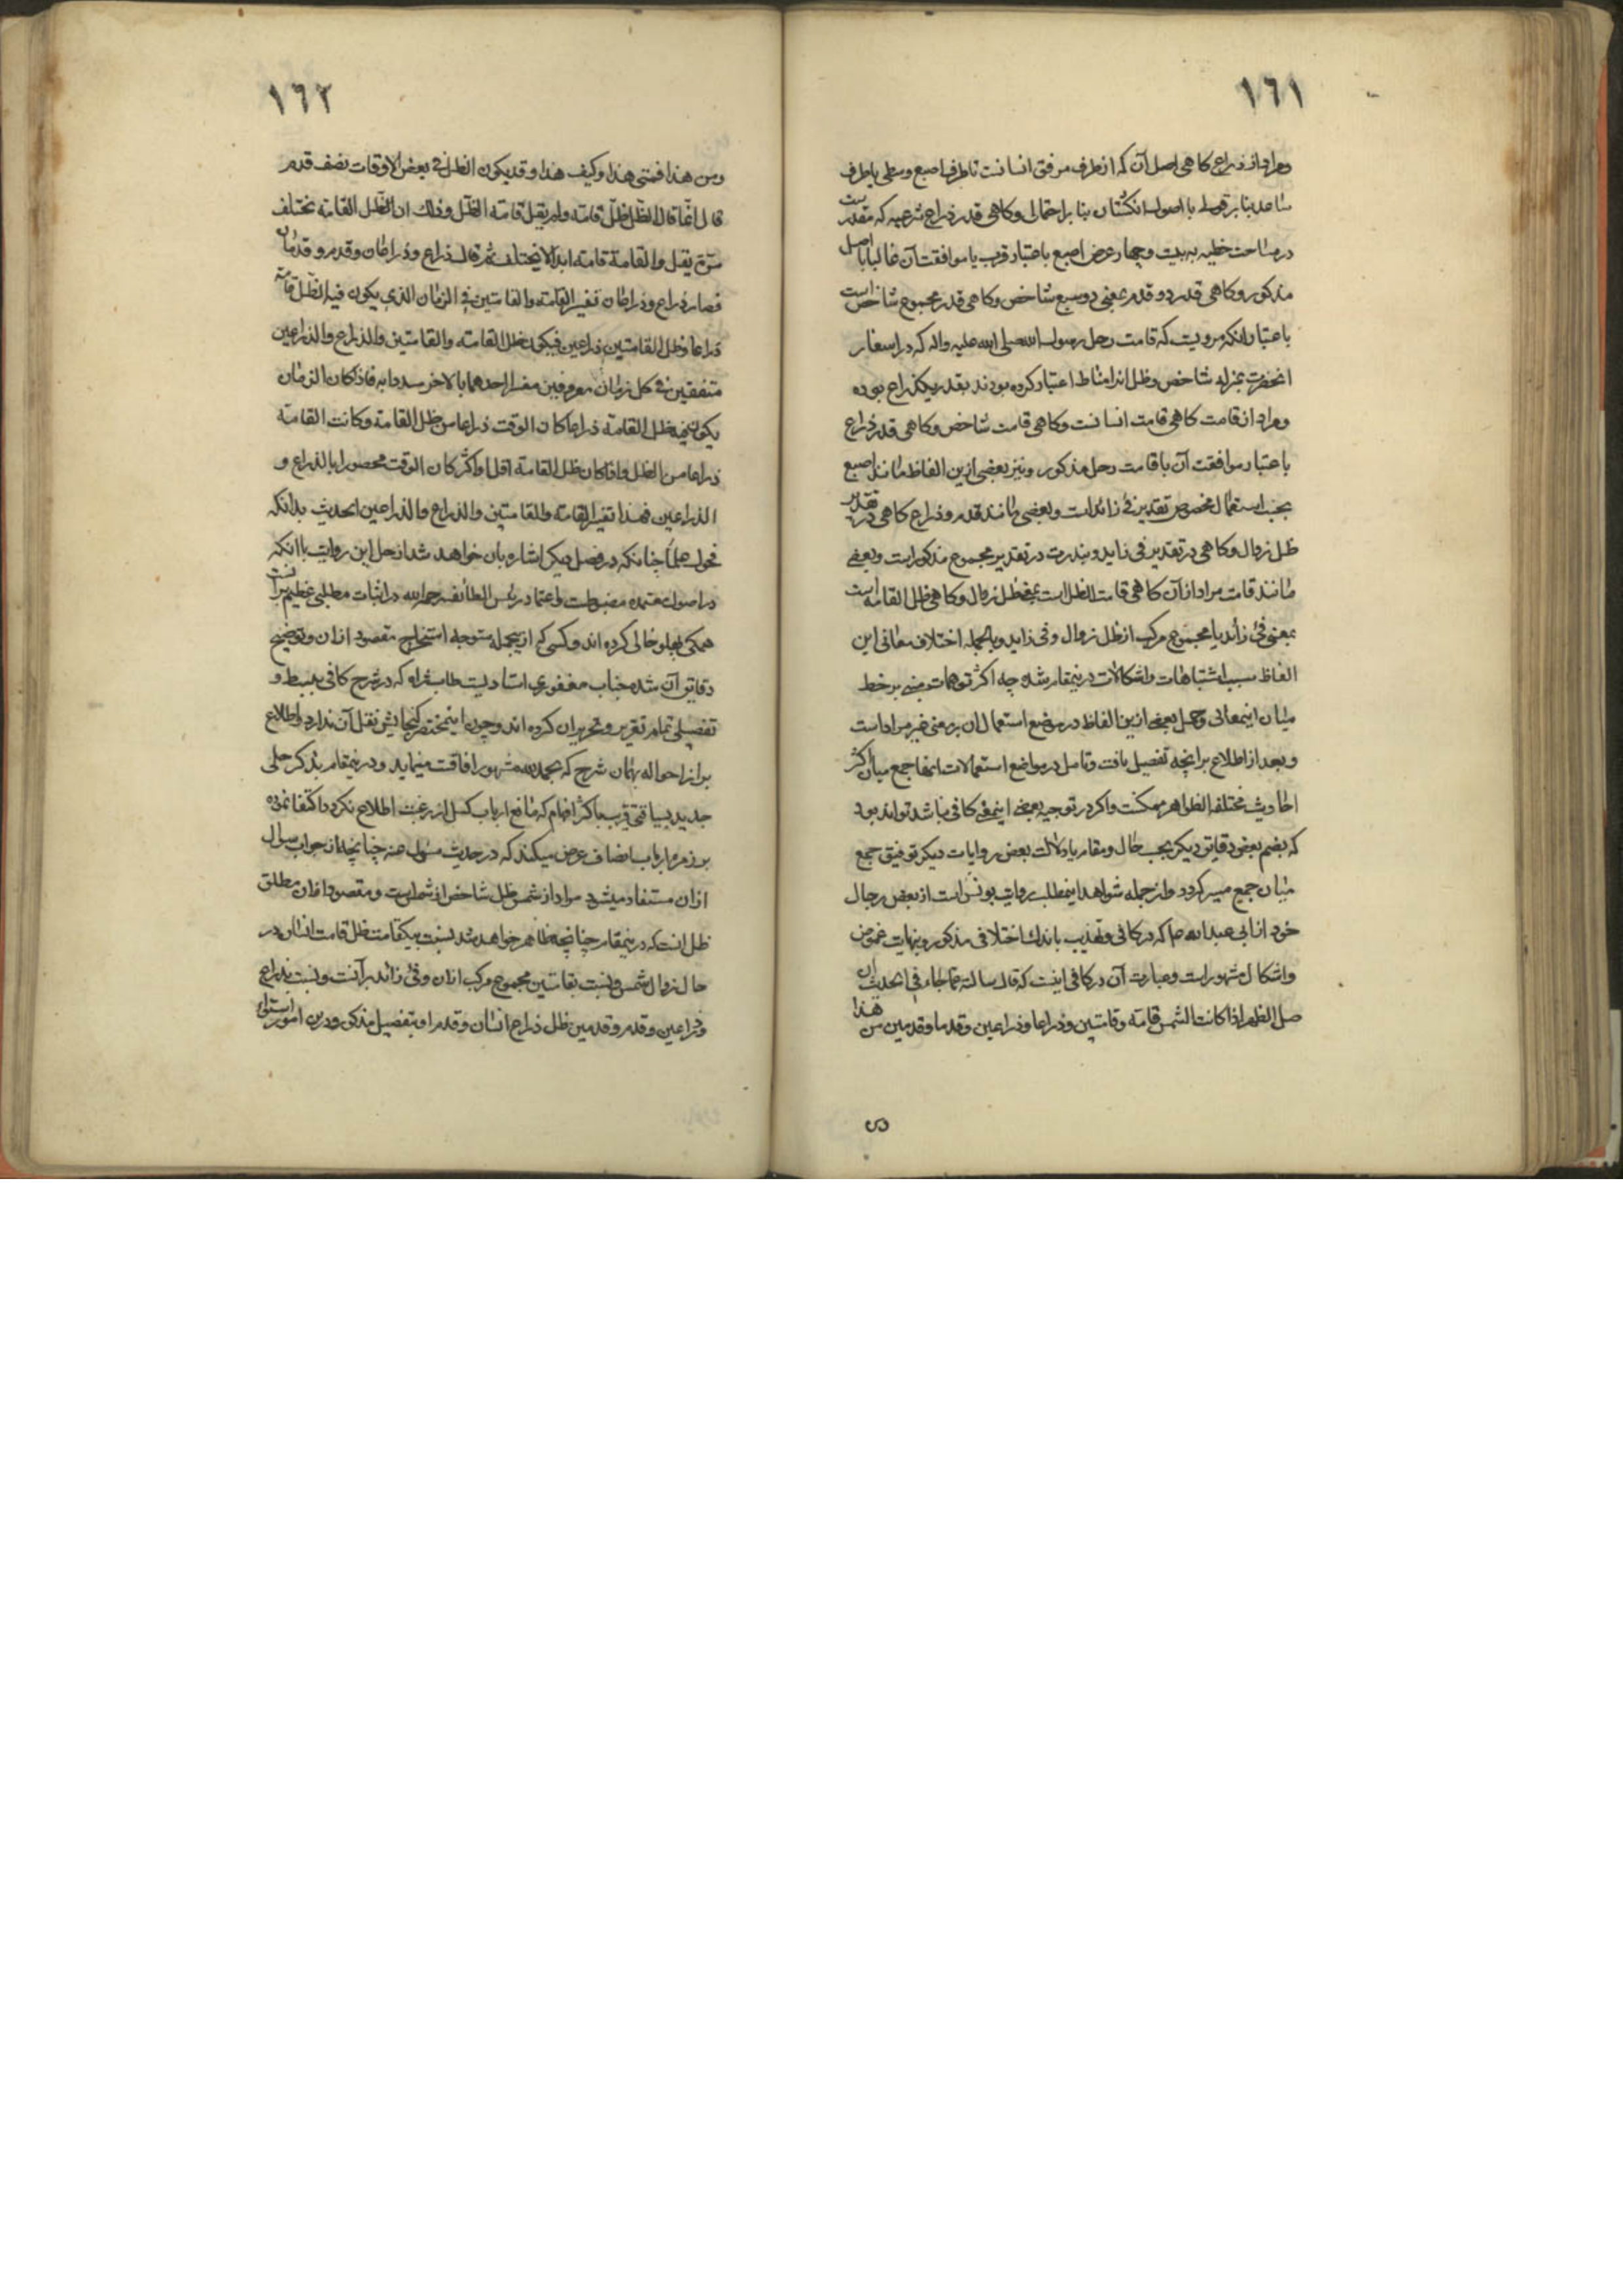 ١٦١
ومراد از ذراع کاهی اصل آن که از طرف مرفق انسانست تا طرف اصبع وسطی یا طرف
ساعد بنا بر قولی با اصول انکشتان بنا بر احتمالی وکاهی قدر ذراع شرعیه که مقدر است
در مساحت خطیه به بیست وچهار عرض اصبع باعتبار قرب یا موافقت آن غالبا با اصل
مذکور وکاهی قدر دو قدم یعنی دو سبع شاخص وکاهی قدر مجموع شاخص است
باعتبار آنکه مرویست که قامت رحل رسول الله صلی الله علیه واله که در اسفار
انحضرت بمنزله شاخص وظل انرا مناط اعتبار کرده بودند بقدر یکذراع بوده
ومراد از قامت کاهی قامت انسانست وکاهی قامت شاخص وکاهی قدر ذراع
باعتبار موافقت آن با قامت رحل مذکور ونیز بعضی ازین الفاظ مانند اصبع
بحسب استعمال مخصوص تقدیر فئ زائد است وبعضی مانند قدم وذراع کاهی در تقدیر
ظل زوال وکاهی در تقدیر فی زاید وبندرت در تقدیر مجموع مذکور است وبعضی
مانند قامت مراد از آن کاهی قامت الظل است یعنی ظل زوال وکاهی ظل القامه است
بمعنی فئ زائد یا مجموع مرکب از ظل زوال وفی زاید وبالجمله اختلاف معانی این
الفاظ سبب اشتباهات واشکالات درینمقام شده چه اکثر توهمات مبنی بر خلط
میان اینمعانی وحمل بعضی ازین الفاظ در موضع استعمال ان بر معنی غیر مراد است
وبعد از اطلاع بر انچه تفصیل یافت وتامل در مواضع استعمالات انها جمع میان اکثر
احادیث مختلفه الظواهر ممکنست واکر در توجیه بعضی اینمعنی کافی نباشد تواند بود
که بضم بعض دقایق دیکر بحسب حال ومقام یا دلالت بعض روایات دیکر توفیق جمع
میان جمیع میسر کردد واز جمله شواهد اینمطلب روایت یونس است از بعض رجال
خود از ابی عبدالله ع که در کافی وتهذیب باندک اختلافی مذکور وبنهایت غموض
واشکال مشهور است وعبارت آن در کافی اینست که قال سالته عما جاء فی الحدیث ان
صل الظهر اذا کانت الشمس قامه وقامتین وذراعا وذراعین وقدما وقدمین من هذا
١٦٢
ومن هذا فمتی هذا وکیف هذا وقد یکون الظل فی بعض الاوقات نصف قدم
قال انما قال الظل ظل قامته ولم یقل قامة الظل وذلک ان الظل القامة تختلف
مرة یقل والقامة قامة ابدا لا یختلف ثم قال ذراع وذراعان وقدم وقدمان
فصار ذراع وذراعان تفسیر القامة والقامتین فی الزمان الذی یکون فیه الظل قامة
ذراعا وظل القامتین ذراعین فیکون ظل القامة والقامتین والذراع والذراعین
متفقین فی کل زمان معروفین مفسرا احدهما بالاخر مسددا به فاذا کان الزمان
یکون فیه ظل القامة ذراعا کان الوقت ذراعا من ظل القامة وکانت القامة
ذراعا من الظل واذا کان ظل القامة اقل او اکثر کان الوقت محصورا بالذراع و
الذراعین فهذا تفسیر القامة والقامتین والذراع والذراعین الحدیث بدانکه
فحول علما چنانکه در فصل دیکر اشاره بان خواهد شد از حل این روایت با انکه
در اصول معتمده مضبوطست واعتماد رئیس الطائفه رحمه الله در اثبات مطلبی عظیم بر انست
همکی پهلو خالی کرده اند وکسی که از ینجمله متوجه استخراج مقصود از ان وتوضیح
دقایق آن شده جناب مغفوری استادیست طاب ثراه که در شرح کافی ببسط و
تفصیلی تمام تقریر وتحریر ان کرده اند وچون اینمختصر کنجایش نقل آن ندارد واطلاع
بر انرا حواله بهمان شرح که بحمد الله مشهور افاقست مینماید ودرینمقام بذکر حلی
جدید بسیاقتی قریب باکثر افهام که مانع ارباب کسل از رغبت اطلاع نکردد اکتفا نموده
بر زمره ارباب انصاف عرض میکند که در حدیث مسئول عنه چنانچه از جواب سوال
ازان مستفاد میشود مراد از شمس ظل شاخص از شمس است ومقصود ازان مطلق
ظل است که درینمقام چنانچه ظاهر خواهد شد بنسبت بیکقامت ظل قامت انسان در
حال زوال شمس وبنسبت بقامتین مجموع مرکب ازان وفئ زائد برآنست ونسبت بذراع
وذراعین وقدم وقدمین ظل ذراع انسان وقدم او بتفصیل مذکور ودرین امور استواء